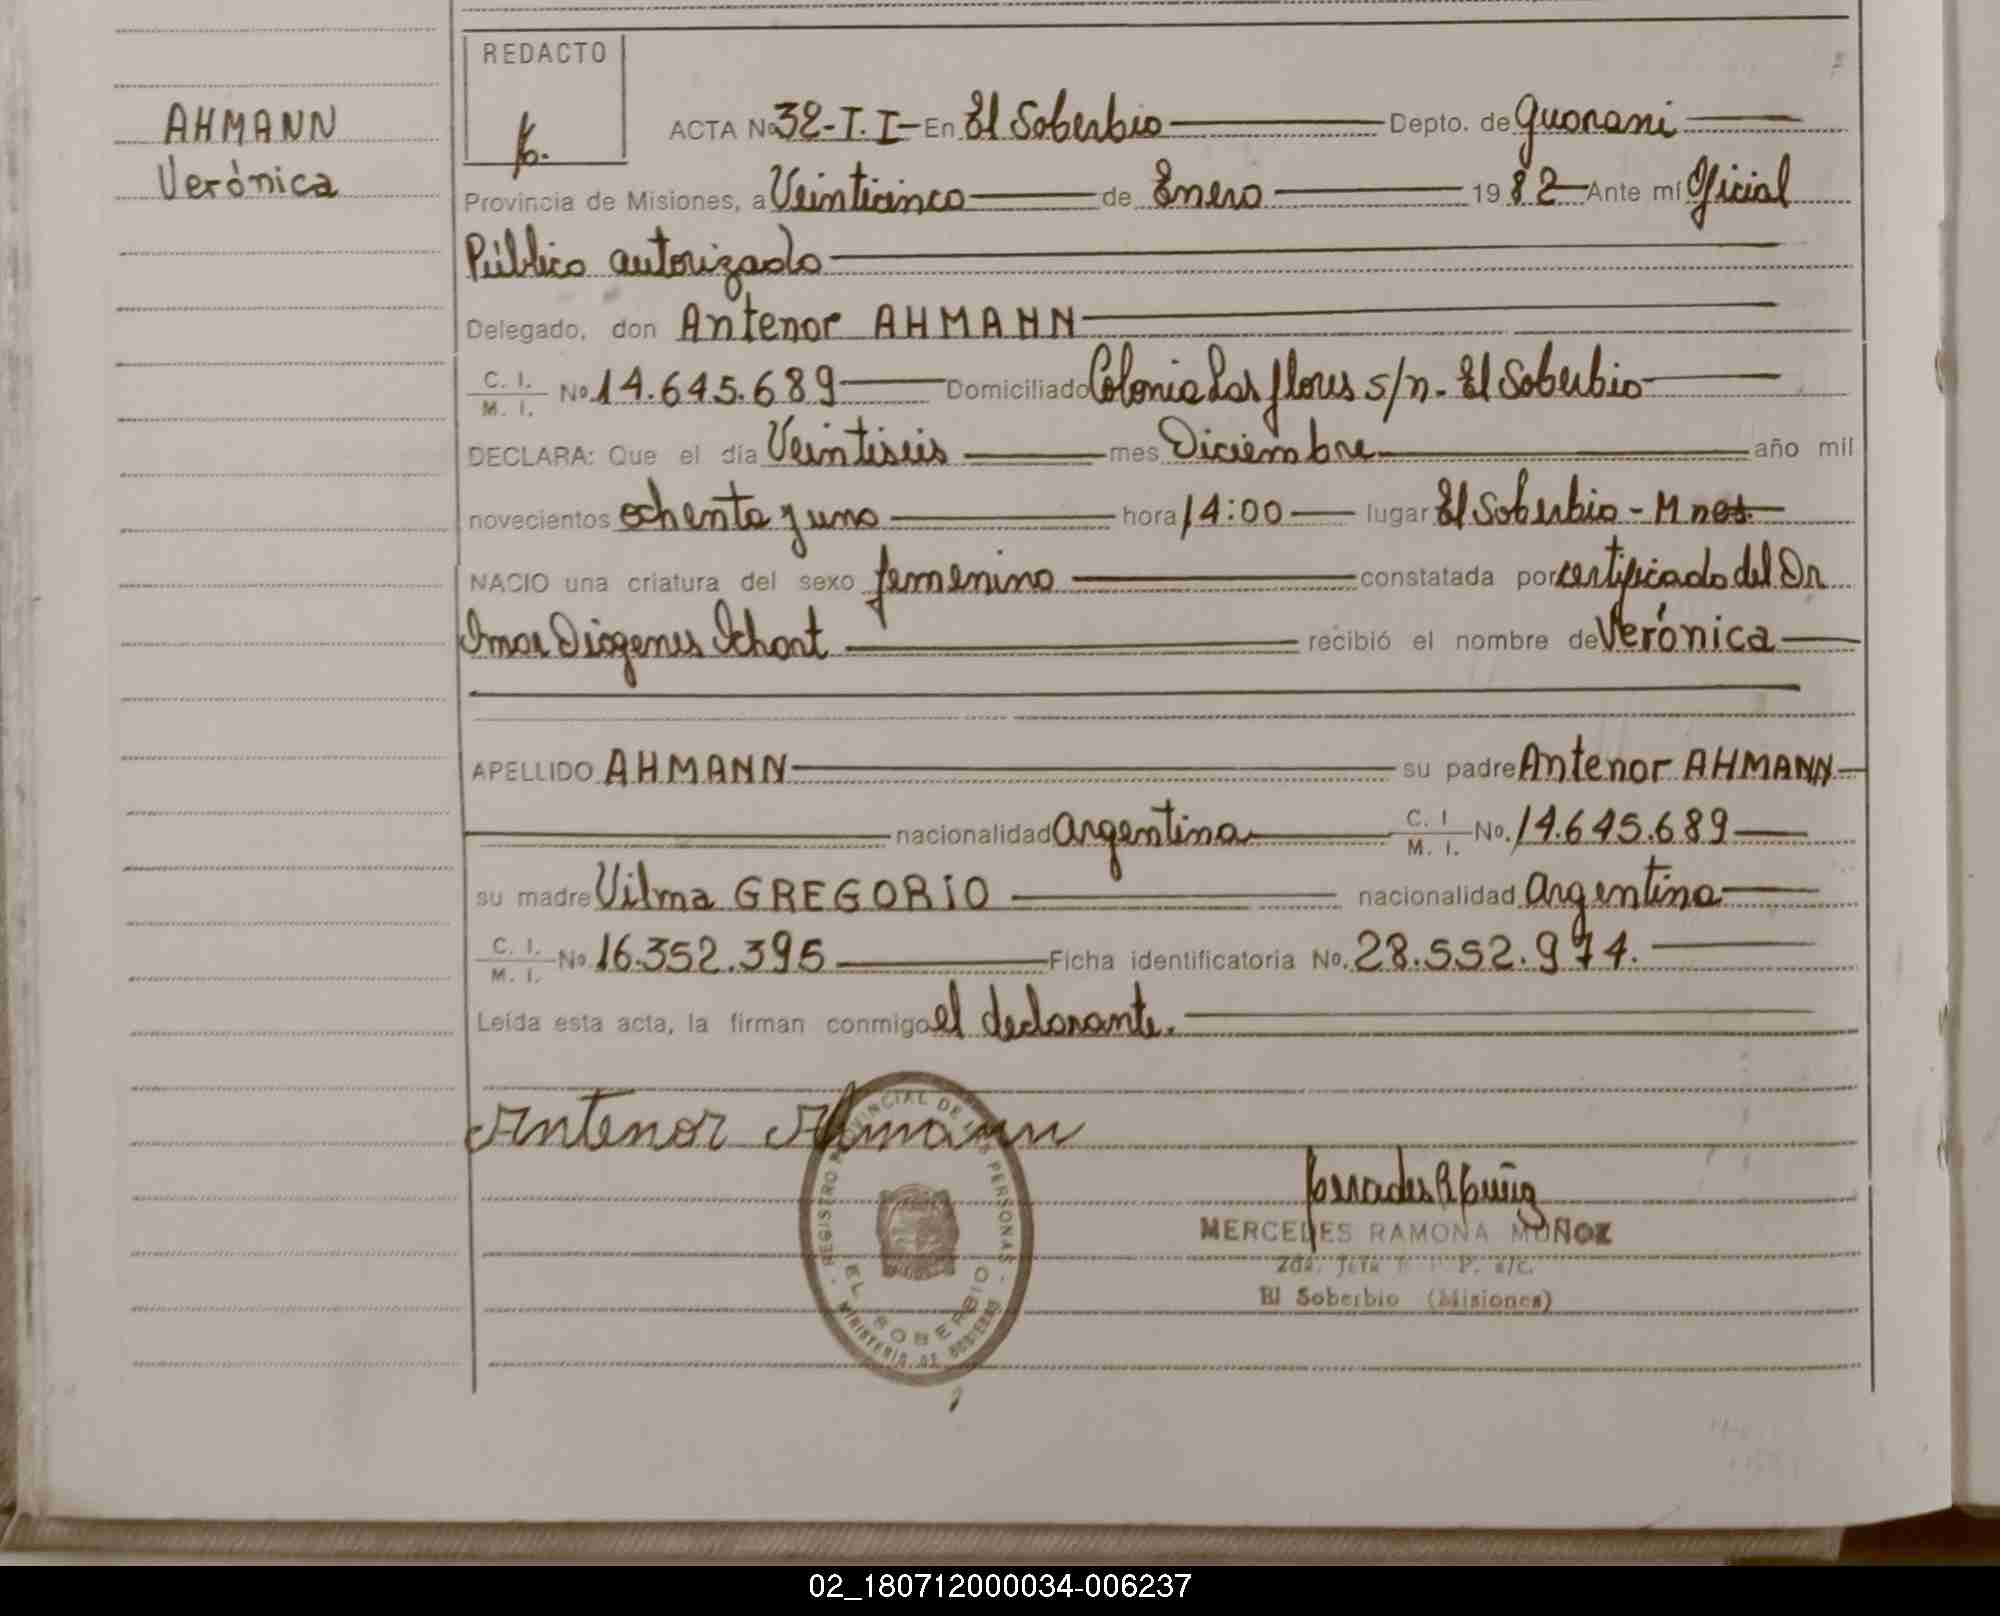 REDACTO
AHMANN
Verónica
ACTA No 32-T.I-En El Soberbio Depto. de Guarani
Provincia de Misiones, a Veinticinco de Enero 1982 Ante mí Oficial
Público autorizado
Delegado, don Antenor AHMANN
C. I. M. I. No. 14.645.689 Domiciliado Colonia Las flores s/n. El Soberbio
DECLARA: Que el día Veintiseis mes Diciembre año mil
novecientos ochenta y uno hora 14:00 lugar El Soberbio - Mnes.
NACIO una criatura del sexo femenino constatada por certificado del Dr
Omar Diógenes recibió el nombre de Verónica
APELLIDO AHMANN su padre Antenor AHMANN
nacionalidad argentina C. I M. I. No. 14.645.689
su madre Vilma GREGORIO nacionalidad argentina
C. I. M. I. No 16.352.395 Ficha identificatoria No. 28.552.974.
Leída esta acta, la firman conmigo el declarante.
Antenor Ahmann
REGISTRO PROVINCIAL DE LAS PERSONAS
EL SOBERBIO
MINISTERIO DE GOBIERNO
MERCEDES RAMONA MUÑOZ
El Soberbio (Misiones)
02_180712000034-006237